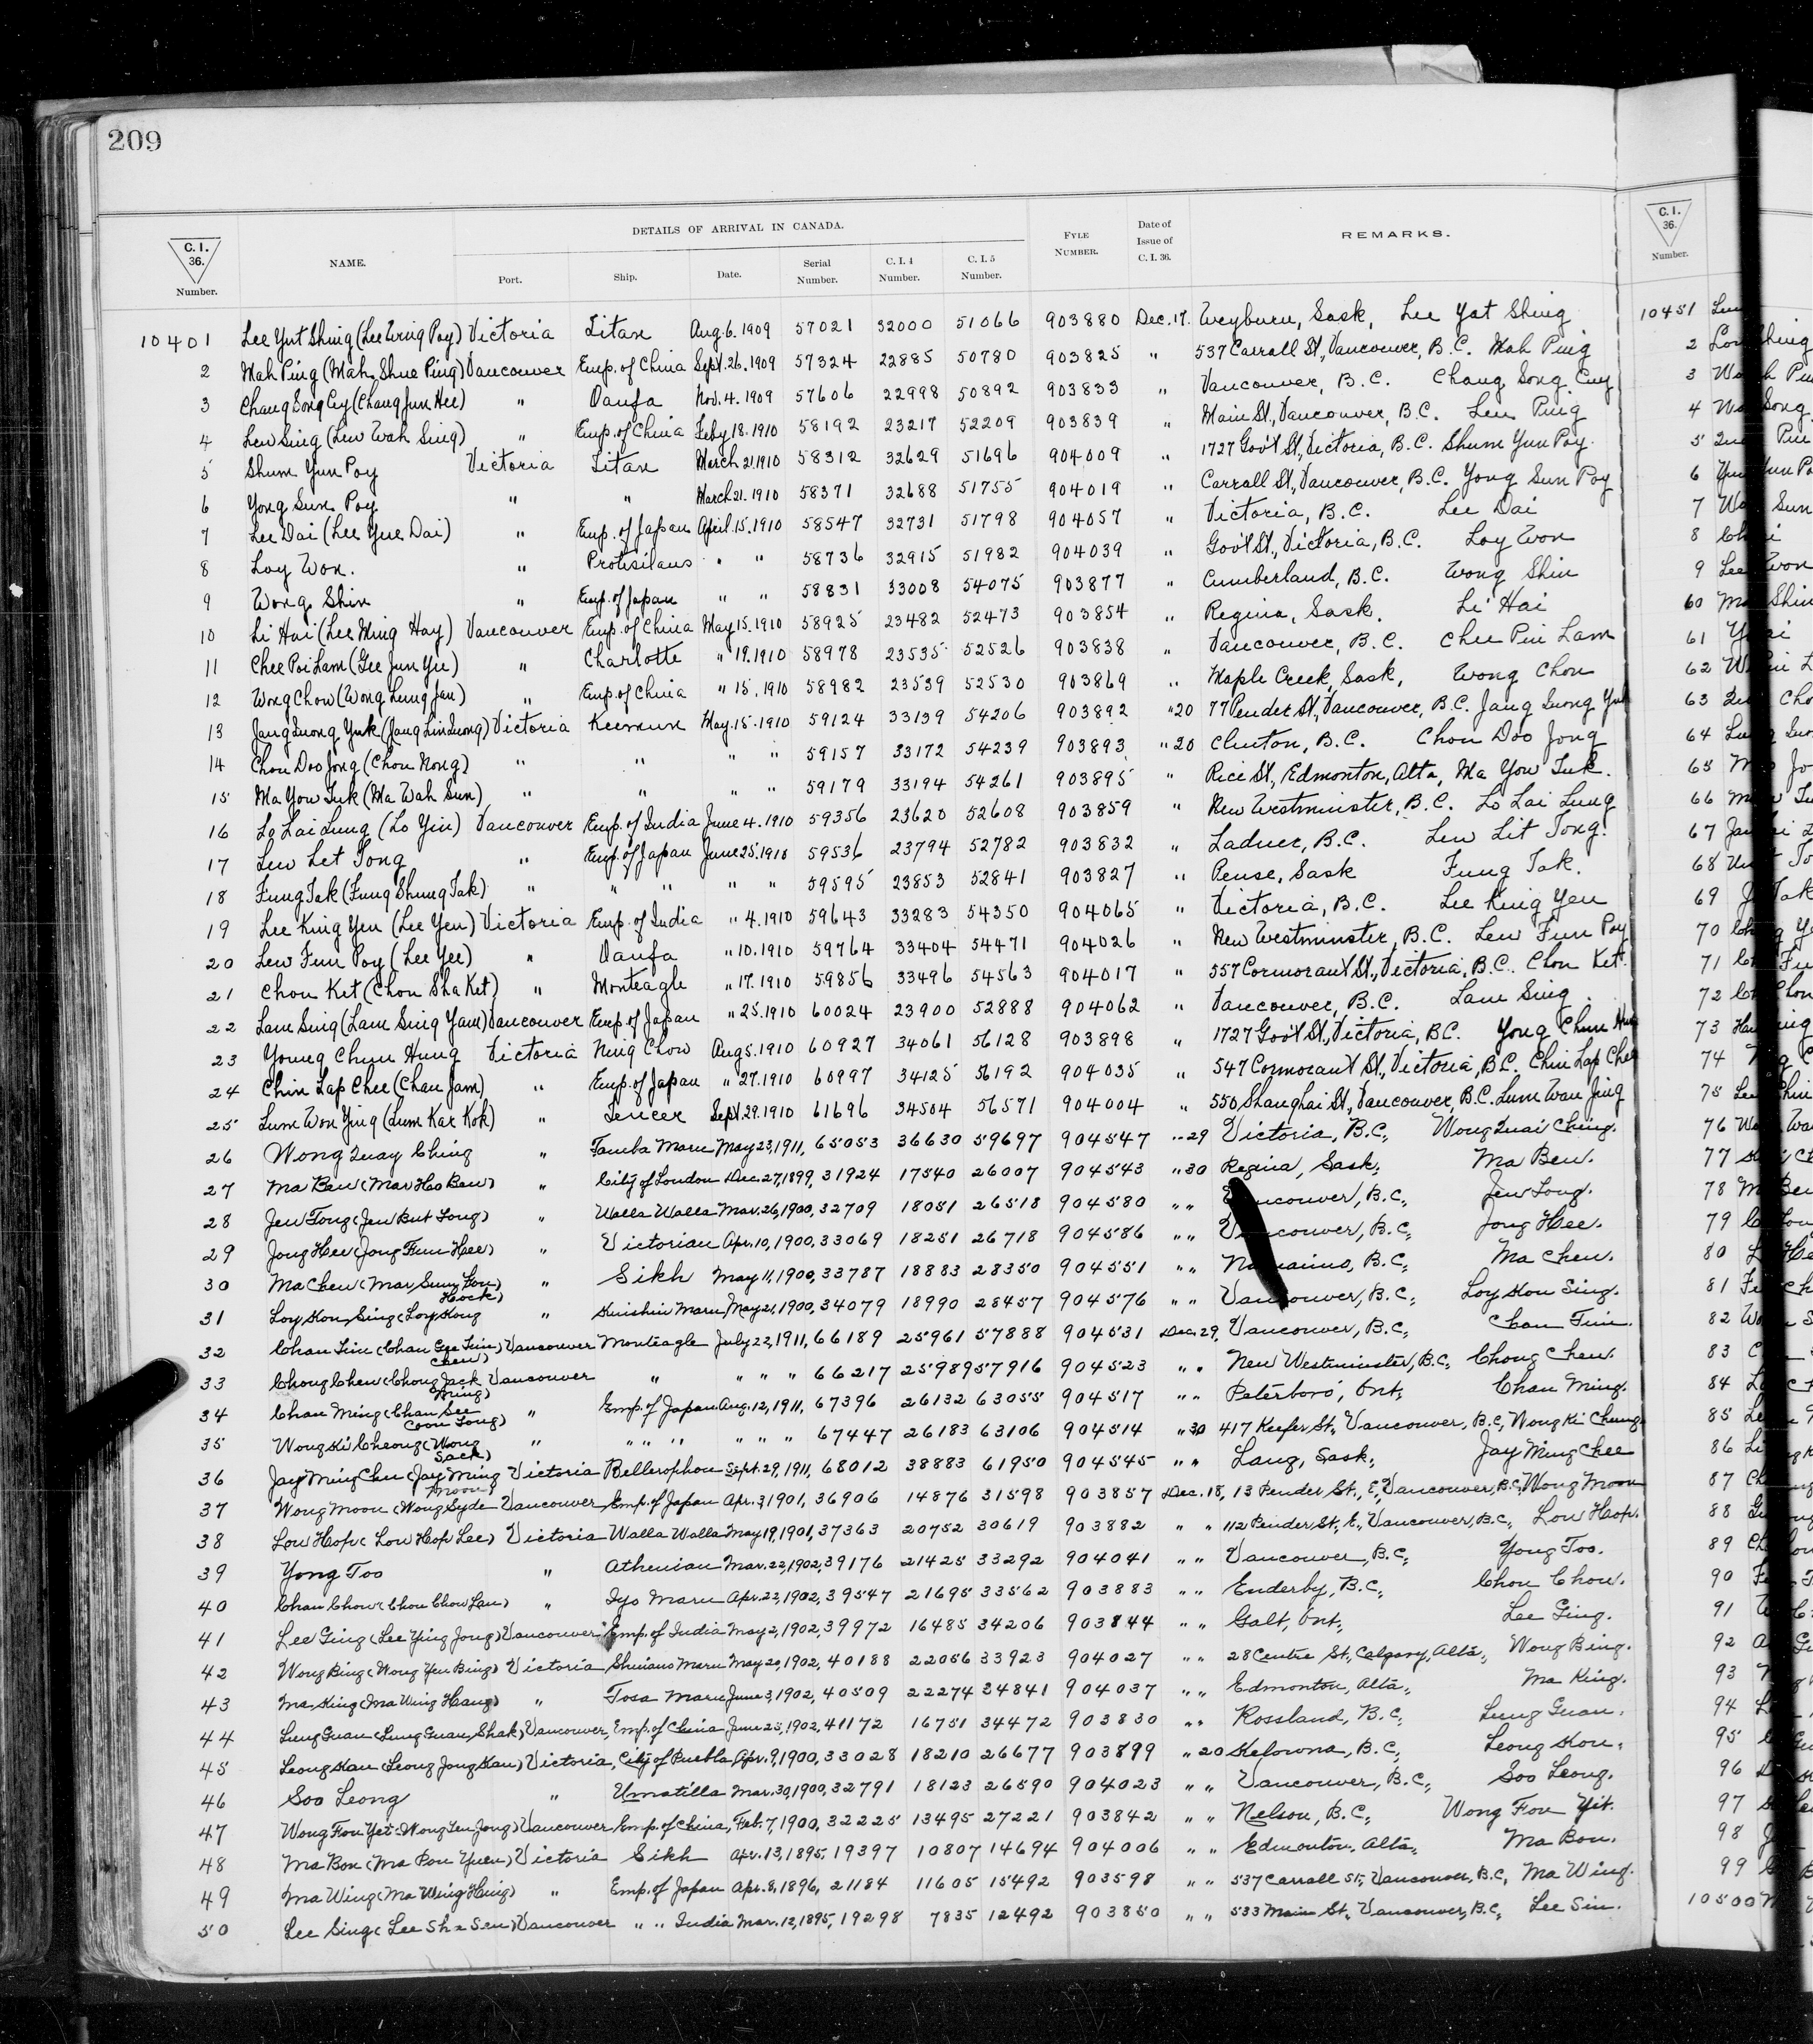 209
DETAILS OF ARRIVAL IN CANADA.
C. I. 36. Number. NAME. Port. Ship. Date. Serial Number. C. I. 4 Number. C. I. 5 Number. FYLE NUMBER. Date of Issue of C. I. 36. REMARKS. C. I. 36. Number.
10401 Lee Yut Shing (Lee Wing Poy) Victoria Titan Aug. 6. 1909 57021 32000 51066 903880 Dec. 17. Weyburn, Sask, Lee Yat Shing 10451
2 Mah Ping (Mah Shue Ping) Vancouver Emp. of China Sept. 26. 1909 57324 22885 50780 903825 " 537 Carrall St., Vancouver, B.C. Mah Ping 2
3 Chang Song Cuy (Chang Jun Hee) " Oanfa Nov. 4. 1909 57606 22998 50892 903833 " Vancouver, B.C. Chang Song Cuy 3
4 Lew Sing (Lew Wah Sing) " Emp. of China Feby 18. 1910 58192 23217 52209 903839 " Main St., Vancouver, B.C. Leu Ping 4
5 Shum Yun Poy Victoria Titan March 21. 1910 58312 32629 51696 904009 " 1727 Gov't St., Victoria, B.C. Shum Yun Poy. 5
6 Yong Sun Poy " " March 21. 1910 58371 32688 51755 904019 " Carrall St., Vancouver, B.C. Yong Sun Poy 6
7 Lee Dai (Lee Yue Dai) " Emp. of Japan April. 15. 1910 58547 32731 51798 904057 " Victoria, B.C. Lee Dai 7
8 Loy Won. " Protisilaus " " 58736 32915 51982 904039 " Gov't St., Victoria, B.C. Loy Won 8
9 Wong Shin " Emp. of Japan " " 58831 33008 54075 903877 " Cumberland, B.C. Wong Shin 9
10 Li Hai (Lee Ming Hay) Vancouver Emp. of China May 15. 1910 58925 23482 52473 903854 " Regina, Sask. Li Hai 60
11 Chee Poi Lam (Gee Jun Yu) " Charlotte " 19. 1910 58978 23535 52526 903838 " Vancouver, B.C. Chee Pui Lam 61
12 Wong Chow (Wong Lung Jan) " Emp. of China " 15. 1910 58982 23539 52530 903869 " Maple Creek, Sask, Wong Chon 62
13 Jang Luong Yuk (Jang Lin Luong) Victoria Keemun May. 15. 1910 59124 33139 54206 903892 " 20 77 Pender St., Vancouver, B.C. Jang Luong Yuk 63
14 Chou Doo Jong (Chou Nong) " " " " 59157 33172 54239 903893 " 20 Clinton, B.C. Chou Doo Jong 64
15 Ma You Tuk (Ma Wah Sun) " " " " 59179 33194 54261 903895 " Rice St., Edmonton, Alta, Ma You Tuk. 65
16 Lo Lai Lung (Lo Yin) Vancouver Emp. of India June 4. 1910 59356 23620 52608 903859 " New Westminister, B.C. Lo Lai Lung 66
17 Lew Let Tong " Emp. of Japan June 25. 1910 59536 23794 52782 903832 " Ladner, B.C. Lew Lit Tong. 67
18 Fung Tak (Fung Shung Tak) " " " " " 59595 23853 52841 903827 " Pense, Sask Fung Tak. 68
19 Lee King Yen (Lee Yen) Victoria Emp. of India " 4. 1910 59643 33283 54350 904065 " Victoria, B.C. Lee King Yen 69
20 Lew Fun Poy (Lee Yee) " Oanfa " 10. 1910 59764 33404 54471 904026 " New Westminster, B.C. Lew Fun Poy 70
21 Chou Ket (Chou Sha Ket) " Monteagle " 17. 1910 59856 33496 54563 904017 " 557 Cormorant St., Victoria, B.C. Chou Ket. 71
22 Lam Sing (Lam Sing Yam) Vancouver Emp. of Japan " 25. 1910 60024 23900 52888 904062 " Vancouver, B.C. Lam Sing. 72
23 Young Chun Hung Victoria Ning Chow Aug 5. 1910 60927 34061 56128 903898 " 1727 Gov't St., Victoria, B.C. Yong Chun Hung 73
24 Chin Lap Chee (Chan Jam) " Emp. of Japan " 27. 1910 60997 34125 56192 904035 " 547 Cormorant St., Victoria, B.C. Chin Lap Chee 74
25 Lum Won Ying (Lum Kar Kok) " Teucer Sept. 29. 1910 61696 34504 56571 904004 " 550 Shanghai St., Vancouver, B.C. Lum Wan Jing 75
26 Wong Quay Ching " Tamba Maru May 23, 1911, 65053 36630 59697 904547 " 29 Victoria, B.C., Wong Quai Ching. 76
27 Ma Ban (Mar Hoo Ban) " City of London Dec. 27, 1899, 31924 17540 26007 904543 " 30 Regina, Sask., Ma Ben. 77
28 Jew Tong (Jew But Tong) " Walla Walla Mar. 26, 1900, 32709 18051 26518 904580 " " Vancouver, B.C., Jew Tong. 78
29 Jong Hee (Jong Fun Hee) " Victorian Apr. 10, 1900, 33069 18251 26718 904586 " " Vancouver, B.C., Jong Hee. 79
30 Ma Chew (Mar Sum Fon) " Sikh May 11, 1900, 33787 18883 28350 904551 " " Nanaimo, B.C., Ma Chew. 80
31 Loy Kon Sing (Loy Kong Hock) " Kinshiu Maru May 21, 1900, 34079 18990 28457 904576 " " Vancouver, B.C., Loy Kon Sing. 81
32 Chan Tim (Chan Gee Tim) Vancouver Monteagle July 22, 1911, 66189 25961 57888 904531 Dec. 29, Vancouver, B.C., Chan Tim. 82
33 Chong Chew (Chong Jack Chew) Vancouver " " " " 66217 25989 57916 904523 " " New Westminister, B.C., Chong Chew. 83
34 Chan Ming (Chan See Ming) " Emp. of Japan Aug. 12, 1911, 67396 26132 63055 904517 " " Peterboro', Ont., Chan Ming. 84
35 Wong Ki Cheong (Wong Coon Tong) " " " " " " " 67447 26183 63106 904514 " 30 417 Keefer St., Vancouver, B.C., Wong Ki Chung 85
36 Jay Ming Chu (Jay Ming Sack) Victoria Bellerophon Sept. 29, 1911, 68012 38883 61950 904545 " " Lang, Sask., Jay Ming Chee 86
37 Wong Moon (Wong Syde Moon) Vancouver, Emp. of Japan Apr. 3, 1901, 36906 14876 31598 903857 Dec. 18, 13 Pender St., E., Vancouver, B.C., Wong Moon 87
38 Low Hop (Low Hop Lee) Victoria Walla Walla May 19, 1901, 37363 20752 30619 903882 " " 112 Pender St., E., Vancouver, B.C., Low Hop. 88
39 Yong Too " Athenian Mar. 22, 1902, 39176 21425 33292 904041 " " Vancouver, B.C., Yong Too. 89
40 Chan Chow (Chou Chow Lan) " Iyo Maru Apr. 22, 1902, 39547 21695 33562 903883 " " Enderby, B.C., Chou Chow. 90
41 Lee Ging (Lee Ying Jong) Vancouver Emp. of India May 2, 1902, 39972 16485 34206 903844 " " Galt, Ont., Lee Ging. 91
42 Wong Bing (Wong Yen Bing) Victoria Shinano Maru May 20, 1902, 40188 22056 33923 904027 " " 28 Centre St., Calgary, Alta., Wong Bing. 92
43 Ma King (Ma Wing Hang) " Tosa Maru June 3, 1902, 40509 22274 34841 904037 " " Edmonton, Alta., Ma King. 93
44 Lung Guan (Lung Guan Shak) Vancouver, Emp. of China June 23, 1902, 41172 16751 34472 903830 " " Rossland, B.C., Lung Guan. 94
45 Leong Kan (Leong Jong Kan) Victoria, City of Puebla Apr. 9, 1900, 33028 18210 26677 903899 " 20 Kelowna, B.C., Leong Kon. 95
46 Soo Leong " Umatilla Mar. 30, 1900, 32791 18123 26590 904023 " " Vancouver, B.C., Soo Leong. 96
47 Wong Fou Yet (Wong Len Jong) Vancouver Emp. of China, Feb. 7, 1900, 32225 13495 27221 903842 " " Nelson, B.C., Wong Fou Yit. 97
48 Ma Bon (Ma Pon Yuen) Victoria Sikh Apr. 13, 1895, 19397 10807 14694 904006 " " Edmonton, Alta., Ma Bon. 98
49 Ma Wing (Ma Wing Hing) " Emp. of Japan Apr. 8, 1896, 21184 11605 15492 903598 " " 537 Carrall St., Vancouver, B.C., Ma Wing. 99
50 Lee Sing (Lee She Sen) Vancouver " " India Mar. 12, 1895, 19298 7835 12492 903850 " " 533 Main St., Vancouver, B.C., Lee Sin. 10500